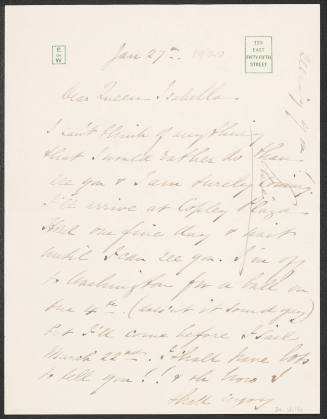 E de W
123
EAST
FIFTY-FIFTH
STREET
Jan 27th. 1920
Dear Queen Isabella -
I can't think of anything
that I would rather do than
see you & I am surely coming.
I'll arrive at Copley Plaza
Hotel one fine day & wait
until I can see you. I'm off
to Washington for a ball on
the 4th. (doesn't it sound gay)
but I'll come before I sail
March 22nd. I shall have lots
to tell you!! & oh how I
shall enjoy